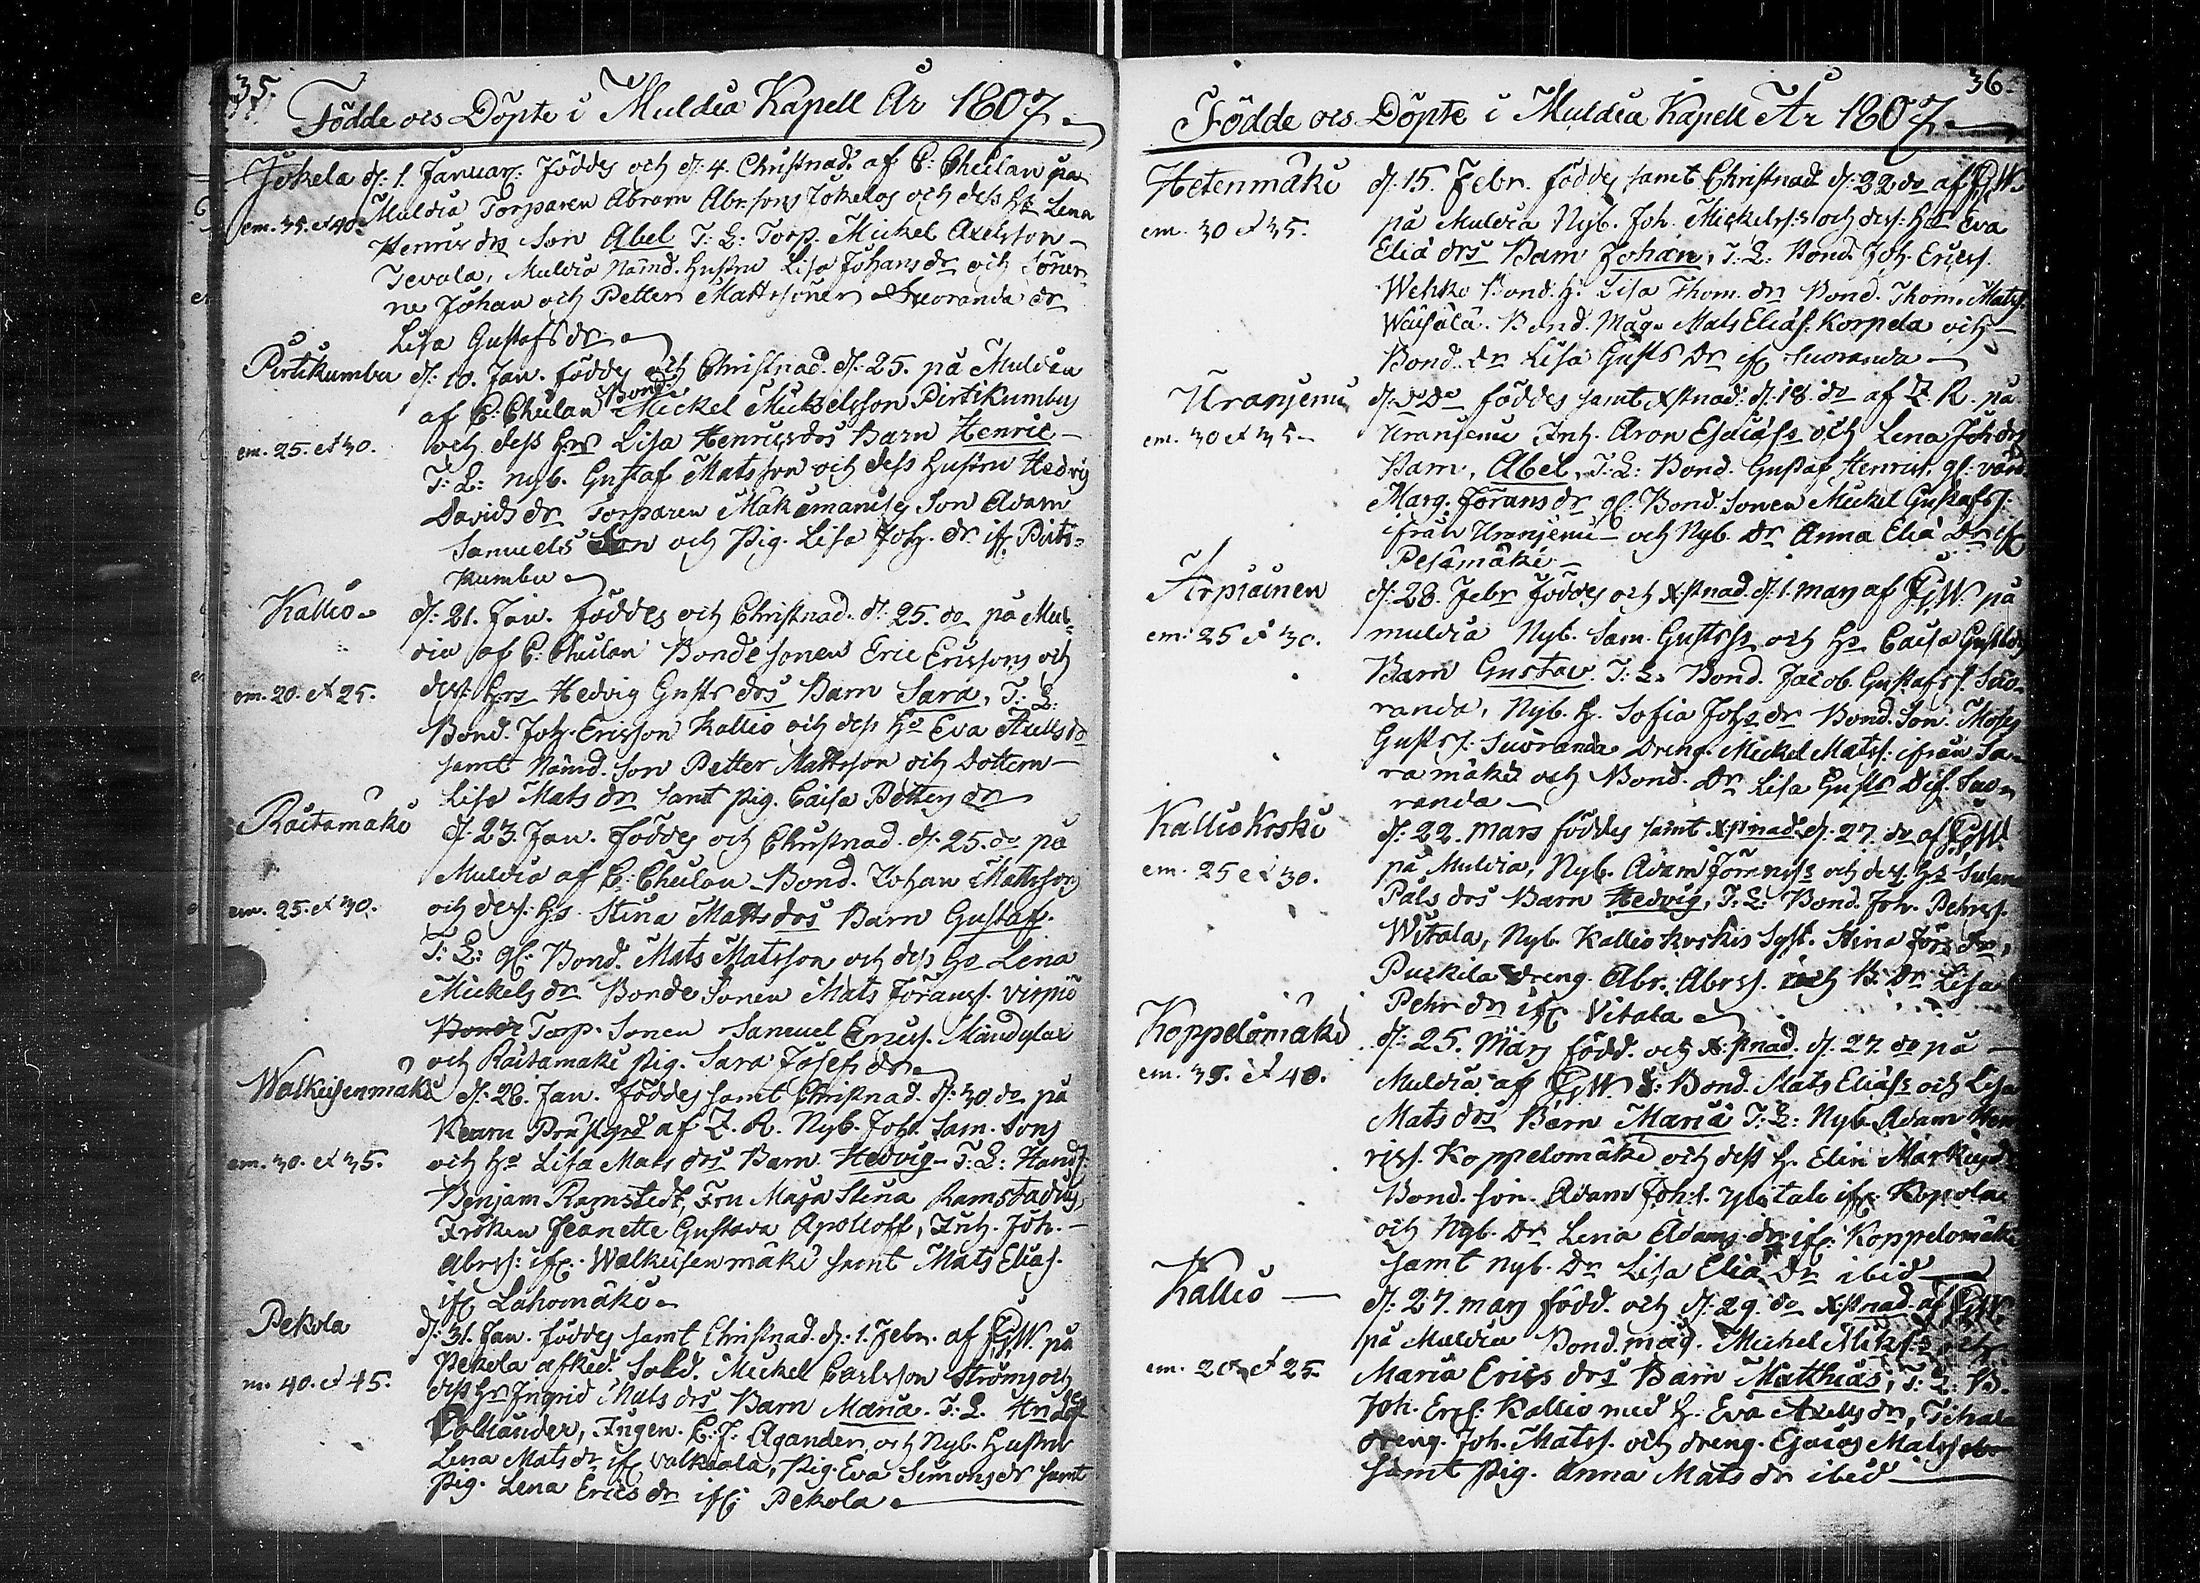 35.
Födde och Döpte i Muldia Kapell År 1807.
Jokela d: 1. Januar. Föddes och d: 4. Christnad. af C: Cheilan på
em. 35. et 40. Muldia Torparen Abram Abr.sons Jokelas och dess H:s Lena
Henrics drs Son Abel T: L: Torp. Mickel Axelsson
Tevala, Muldia Nämd. Hustru Lisa Johans dr och Söner-
ne Johan och Petter Mattssöner Suoranda dr
Lisa Gustafs dr
Pirtikumbu d: 10. Jan. föddes och Christnad. d: 25. på Muldia
af C: Cheilan Bond. Mickel Mickelsson Pirtikumbus
em. 25. et 30. och dess H:s Lisa Henrics drs Barn Henric
T: L: nyb. Gustaf Matsson och dess Hustru Hedvig
Davids dr Torparen Son Adam
Samuels Son och Pig. Lisa Joh. dr if. Pirti-
kumbu
Kallio d: 21. Jan. föddes och Christnad. d: 25. do på Mul-
dia af C: Cheilan Bondesonen Eric Ericssons och
em. 20. et 25. dess H:s Hedvig Gusts drs Barn Sara, T: L:
Bond. Joh. Ericsson Kallio och dess H: Eva Axells dr
samt Nämd. Son Petter Mattsson och dottern
Lisa Mats dr samt pig. Caisa Petters dr
Raitamäki d: 23. Jan. föddes och Christnad. d: 25. do på
Muldia af C: Cheilan Bond. Johan Mattssons
em. 25. et 30. och dess H:s Stina Matts drs Barn Gustaff.
T: L: gl: Bond. Mats Matsson och dess H: Lena
Mickels dr Bonde Sonen Mats Jöranss. virpiö
Torp. Sonen Samuel Ericss.
och Raitamäki Pig. Sara Josefs dr
Walkeisenmäki d: 28. Jan. föddes samt Christnad. d: 30. do på
Keuru Prästgrd af Z. R. Nyb. Joh. Sam. Sons
em. 30. et 35. och H:s Lisa Mats drs Barn Hedvig T: L: Hand.
Benjam Ramstedt, Fru Maja Stina Ramstadius
Fröken Jeanette Gustava Apolloff, Inh. Joh.
Abrss: if. Walkeisenmäki samt Mats Elias.
if. Lahomäki
Pekola d: 31. Jan. föddes samt Christnad. d: 1. Febr. af på
Pekola afsked. Sold. Mickel Carlsson Ströms och
m. 40. et 45. dess H:s Ingrid Mats drs Barn Maria. T: L.
Pollander, Jungfr. C. J. Agander och Nyb. Hustru
Lena Mats dr if. valkeala, Pig. Eva Simons dr samt
Pig. Lena Erics dr if. Pekola
36.
Födde och Döpte i Muldia Kapell År 1807.
Hetenmäki d: 15. Febr. föddes samt Christnad d: 22 do af
em. 30 et 35. på Muldia Nyb. Joh. Mickelss:s och dess H:s Eva
Elia drs Barn Johan, T: L: Bond. Joh. Ericss.
Wehko Bond. H: Lisa Thom. dr Bond. Thom. Matss.
Waisälä. Bond. Måg. Mats Elias. Korpela och
Bond. dr Lisa Gusts dr if. Suoranda
Uranjemi d: do föddes samt Xstnad: d: 18. do af Z. R. på
em. 30 et 35. Uranjemi Inh. Aron och Lena Joh. drs
Barn, Abel, T: L: Bond. Gustaf Henrics. gl: värd.
Marg. Jörans dr gl: Bond. Sonen Mickel Gustafss:
ifrån Uranjemi och Nyb. Dr Anna Elia Dr if.
Pesämäki
Arpiainen d: 28. Febr föddes och Xstnad. d: 1. mars af på
em: 25 et 30. muldia Nyb. Sam. Gustss:s och H:s Caisa
Barn Gustav. T: L: Bond. Jacob Gustafss. Suo-
randa, Nyb. H. Sofia Johs dr Bond. Son.
Gustss: Suoranda Dreng. Mickel Matss. ifrån Sa-
ramäki och Bond. Dr Lisa Gusts D. if. Suo-
randa
Kallio Koski d: 22. mars föddes samt Xstnad. d: 27. do af
em. 25 et 30. på Muldia, Nyb. Adam och dess H:s Susan
Påls drs Barn Hedvig, T: L: Bond. Joh. Pehrss.
Witala, Nyb. Kallio koskis Syst. Stina Jörs dr,
Puckila Dreng. Abr. Abrss. och B. Dr Lisa
Pehrs dr if. Vitala
Koppelomäki d: 25. Mars född. och Xstnad. d: 27. do på
em. 35. et 40. Muldia af Bond. Mats Elias:s och Lisa
Mats drs Barn Maria T: L: Nyb. Adam Hen
ricss. Koppelomäki och dess H. Elin
Bond. son. Adam Joh:s. if. Kopola
och Nyb. Dr Lena Adams dr if. Koppelomäki
samt nyb. Dr Lisa Elia Dr ibid
Kallio d: 27. mars född. och d: 29. do Xstnad. af
på Muldia Bond. måg. Mickel
em. 20 et 25. Maria Erics drs Barn Matthias, T: L: B.
Joh. Ercs. Kallio med H. Eva Axells dr,
dreng. Joh. Matss. och dreng. Esaias Matss
samt Pig. Anna Mats dr ibid